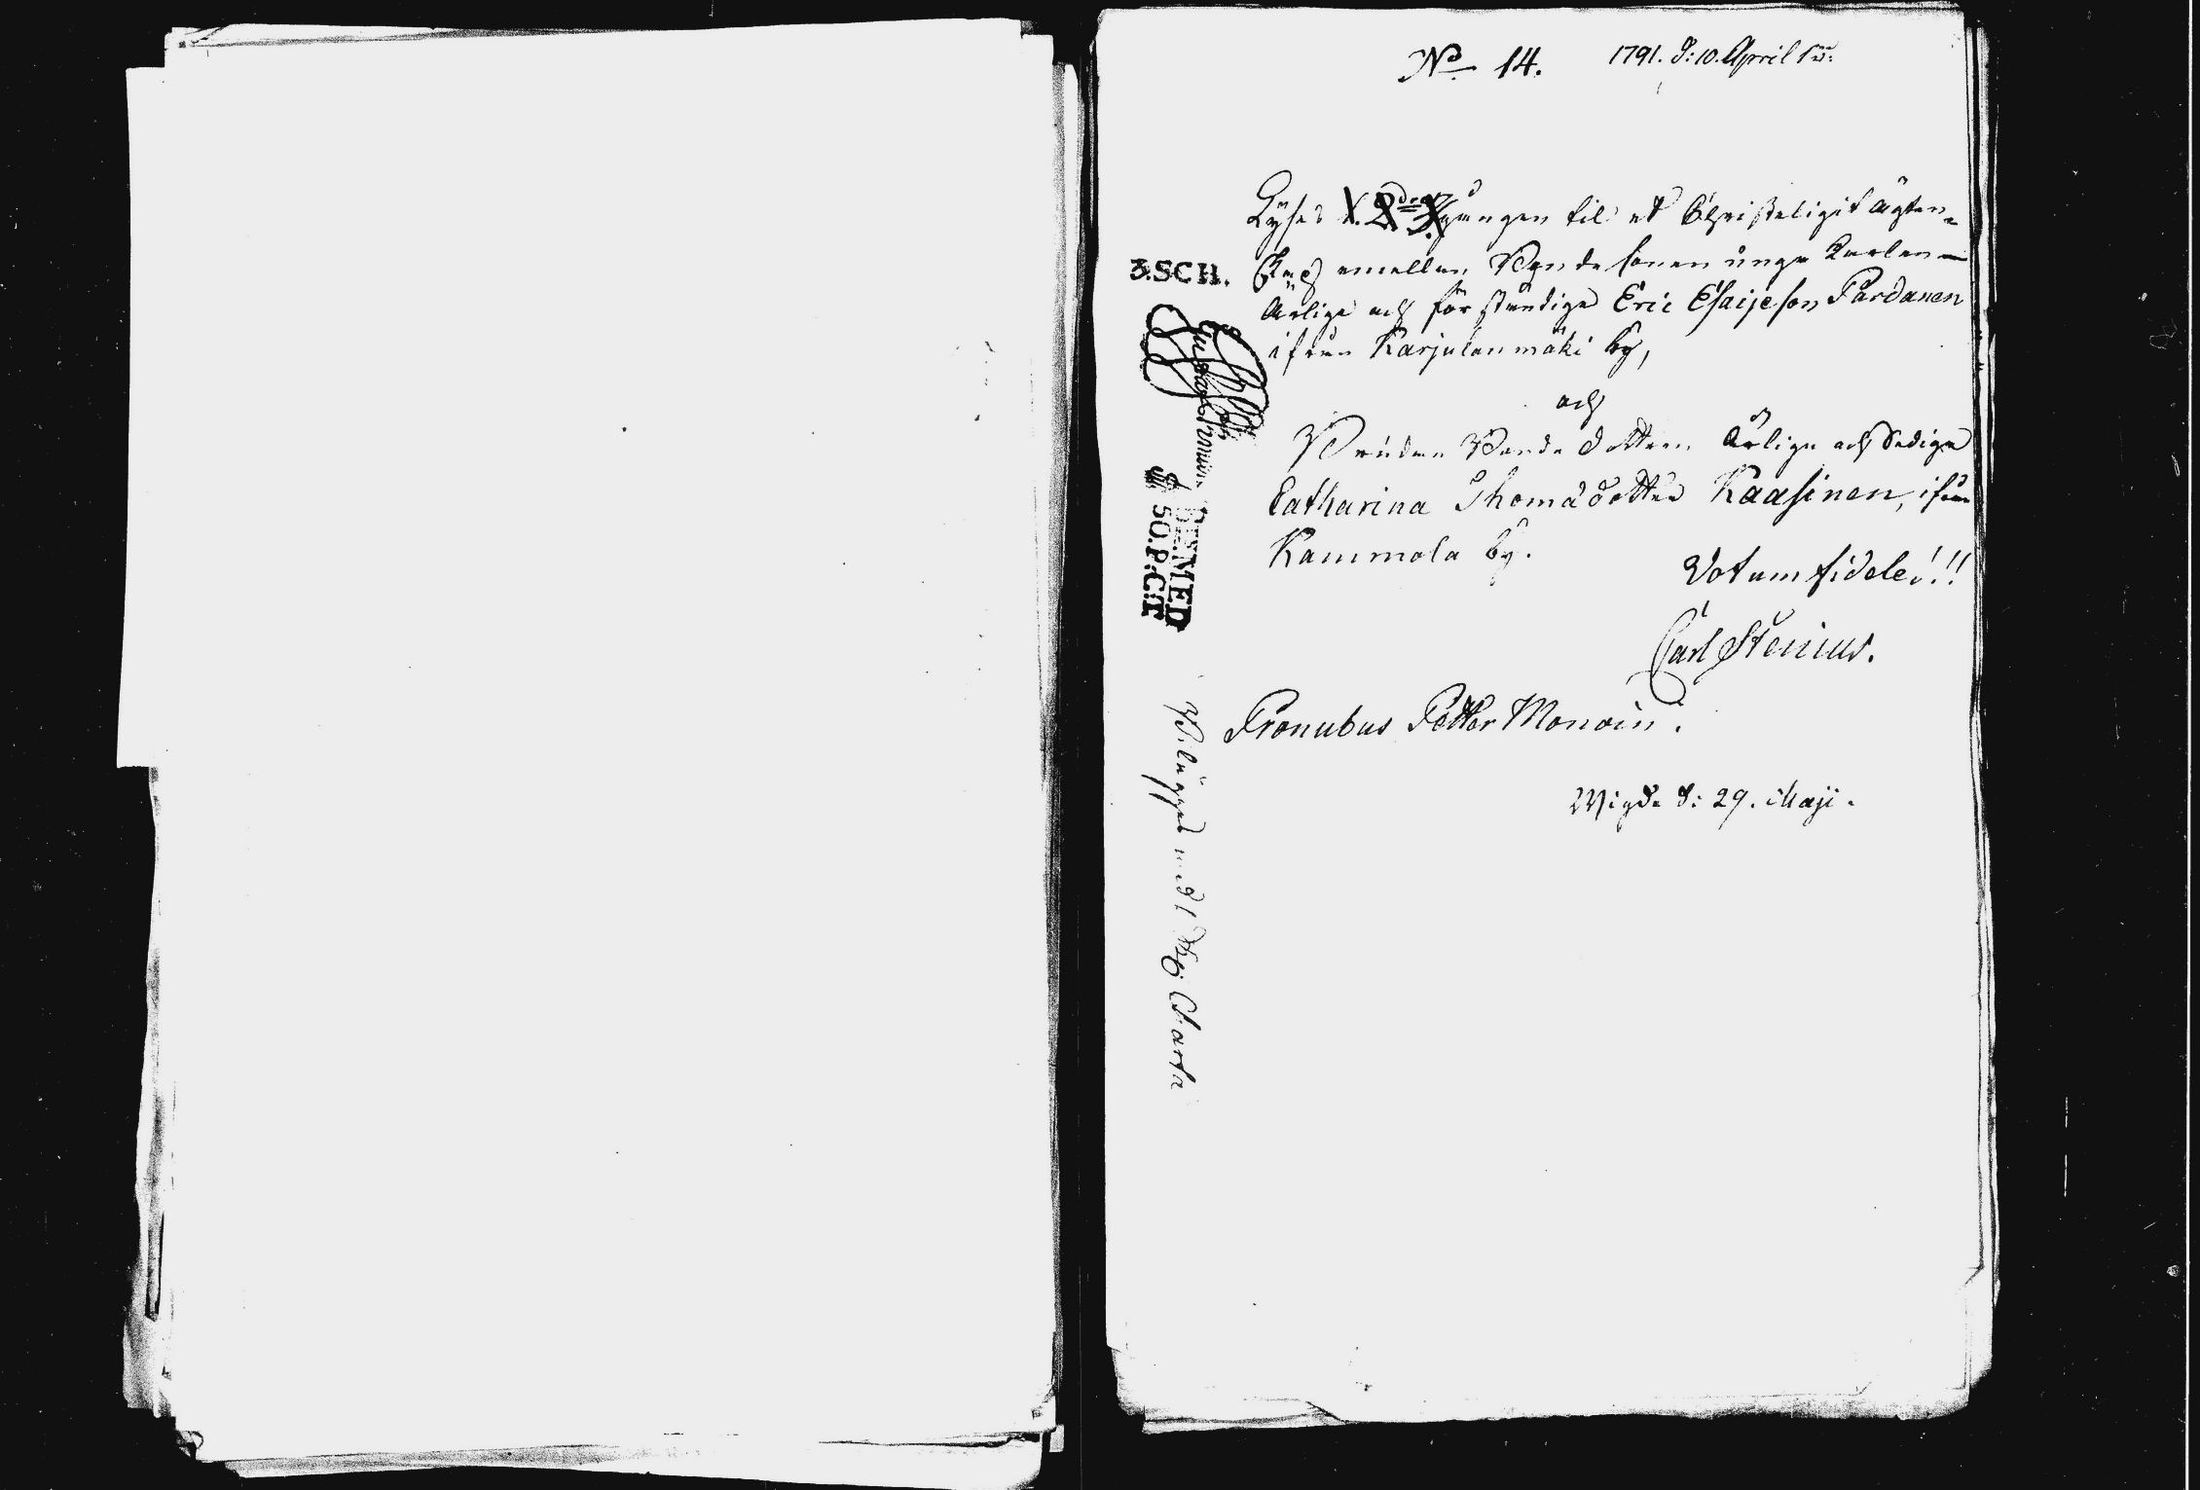 No 14. 1791. d: 10. April
Lyses 1. 2dra 3 gången til et Christeligit ägten=
skap emellan Bondesonen unge Karlen
ärlige och förståndige Eric Esaijeson Pardanen
ifrån Karjulanmäki by,
och
Bruden Bonde dottren ärliga och Sediga
Catharina Thomadotter Kaasinen, ifrån
Kammola by.
Votum fidele!!!
Carl Stenius.
Pronubus Petter Monoin.
Wigde d: 29. Maji.
3.SCH.
BEMED
50.P:C:T
Belägges med 1 Charta